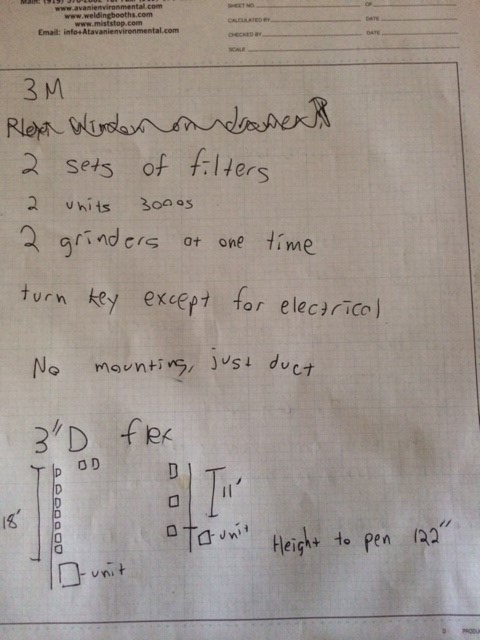 www.avanienvironmental.com
www.weldingbooths.com
www.miststop.com
Email: info+Atavanienvironmental.com
SHEET NO. OF
CALCULATED BY DATE
CHECKED BY DATE
SCALE
3M
on
2 sets of filters
2 units 3000s
2 grinders at one time
turn key except for electrical
No mounting, just duct
3"D flex
18'
unit
11'
unit
Height to pen 122"